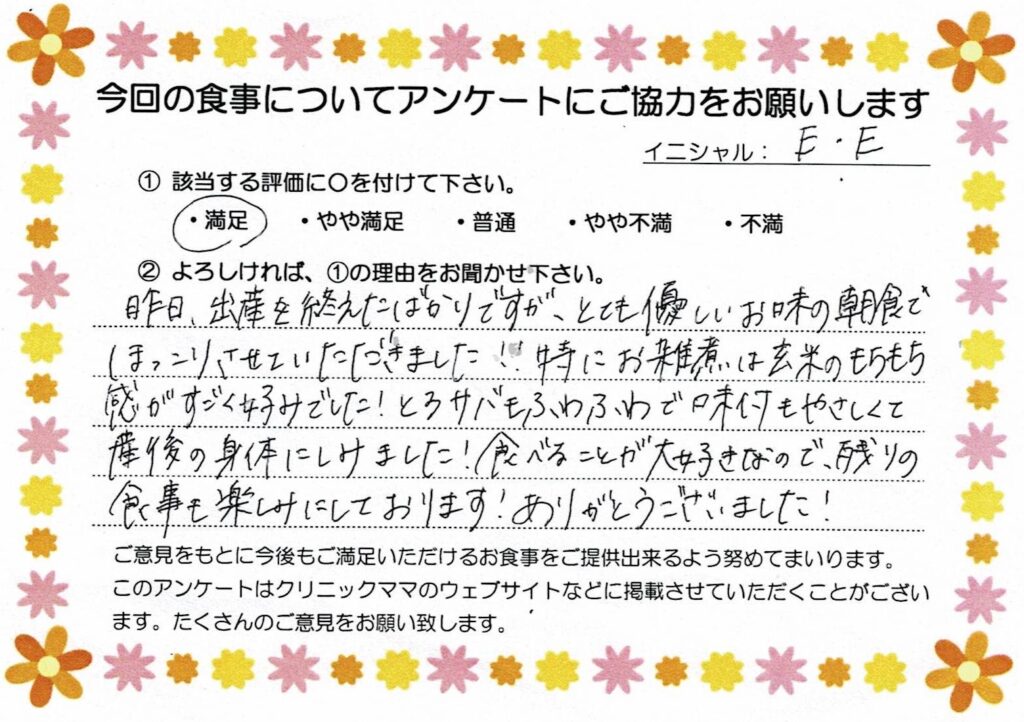 今回の食事についてアンケートにご協力をお願いします
イニシャル： E・E
① 該当する評価に〇を付けて下さい。
・満足 ・やや満足 ・普通 ・やや不満 ・不満
② よろしければ、①の理由をお聞かせ下さい。
昨日、出産を終えたばかりですが、とても優しいお味の朝食で
ほっこりさせていただきました!! 特にお雑煮は玄米のもちもち
感がすごく好みでした！とろサバもふわふわで味付もやさしくて
産後の身体にしみました！食べることが大好きなので、残りの
食事も楽しみにしております！ありがとうございました！
ご意見をもとに今後もご満足いただけるお食事をご提供出来るよう努めてまいります。
このアンケートはクリニックママのウェブサイトなどに掲載させていただくことがござい
ます。たくさんのご意見をお願い致します。